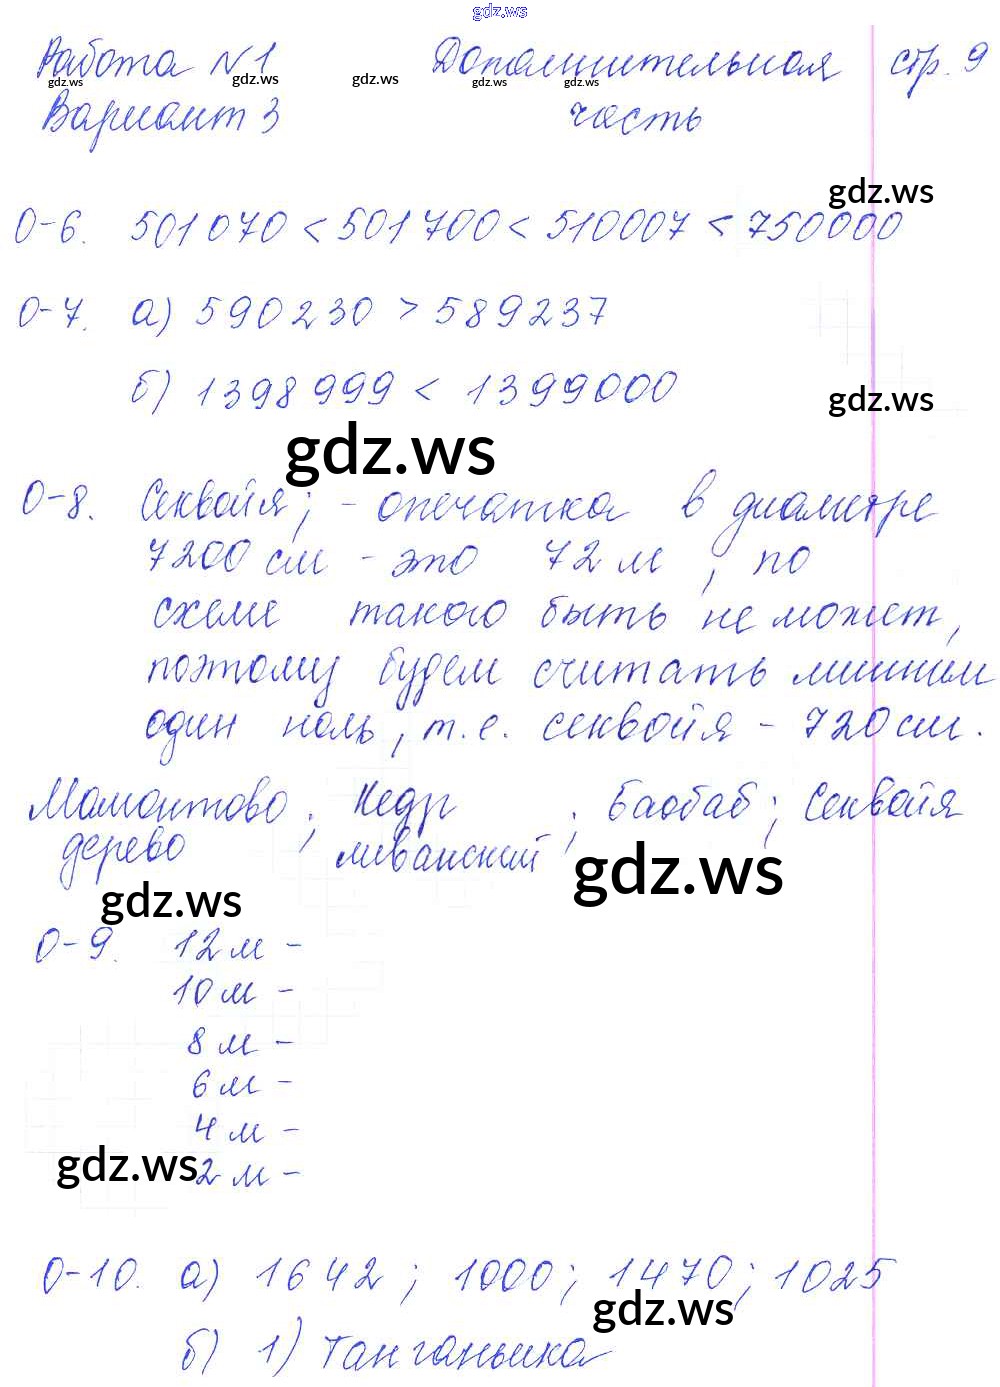 gdz.ws
Работа №1 Дополнительная стр. 9
gdz.ws gdz.ws gdz.ws gdz.ws gdz.ws gdz.ws
Вариант 3 часть
gdz.ws
0-6. 501070 < 501700 < 510007 < 750000
0-7. а) 590230 > 589237
б) 1398999 < 1399000
gdz.ws
gdz.ws
0-8. Секвойя; - опечатка в диаметре
7200 см - это 72 м, по
схеме такого быть не может,
поэтому будем считать лишним
один ноль, т.е. секвойя - 720 см.
Мамонтово ; Кедр ; Баобаб; Секвойя
дерево ливанский
gdz.ws
gdz.ws
0-9. 12 м -
10 м -
8 м -
6 м -
4 м -
gdz.ws
2 м -
0-10. а) 1642 ; 1000; 1470; 1025
gdz.ws
б) 1) Танганьика